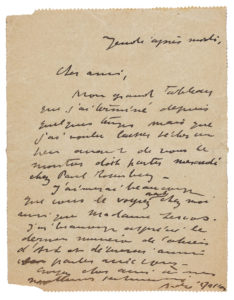 Jeudi après midi,
Cher ami,
Mon grand tableau
que j'ai terminé depuis
quelques temps mais que
j'ai voulu laisser sécher un
peu avant de vous le
montrer doit partir mercredi
chez Paul Rosenberg
J'aimerais beaucoup
que vous le voyez chez moi
ainsi que Madame
J'ai beaucoup le
dernier numéro de Cahiers
d'Art et
parler avec vous
Croyez cher ami à mes